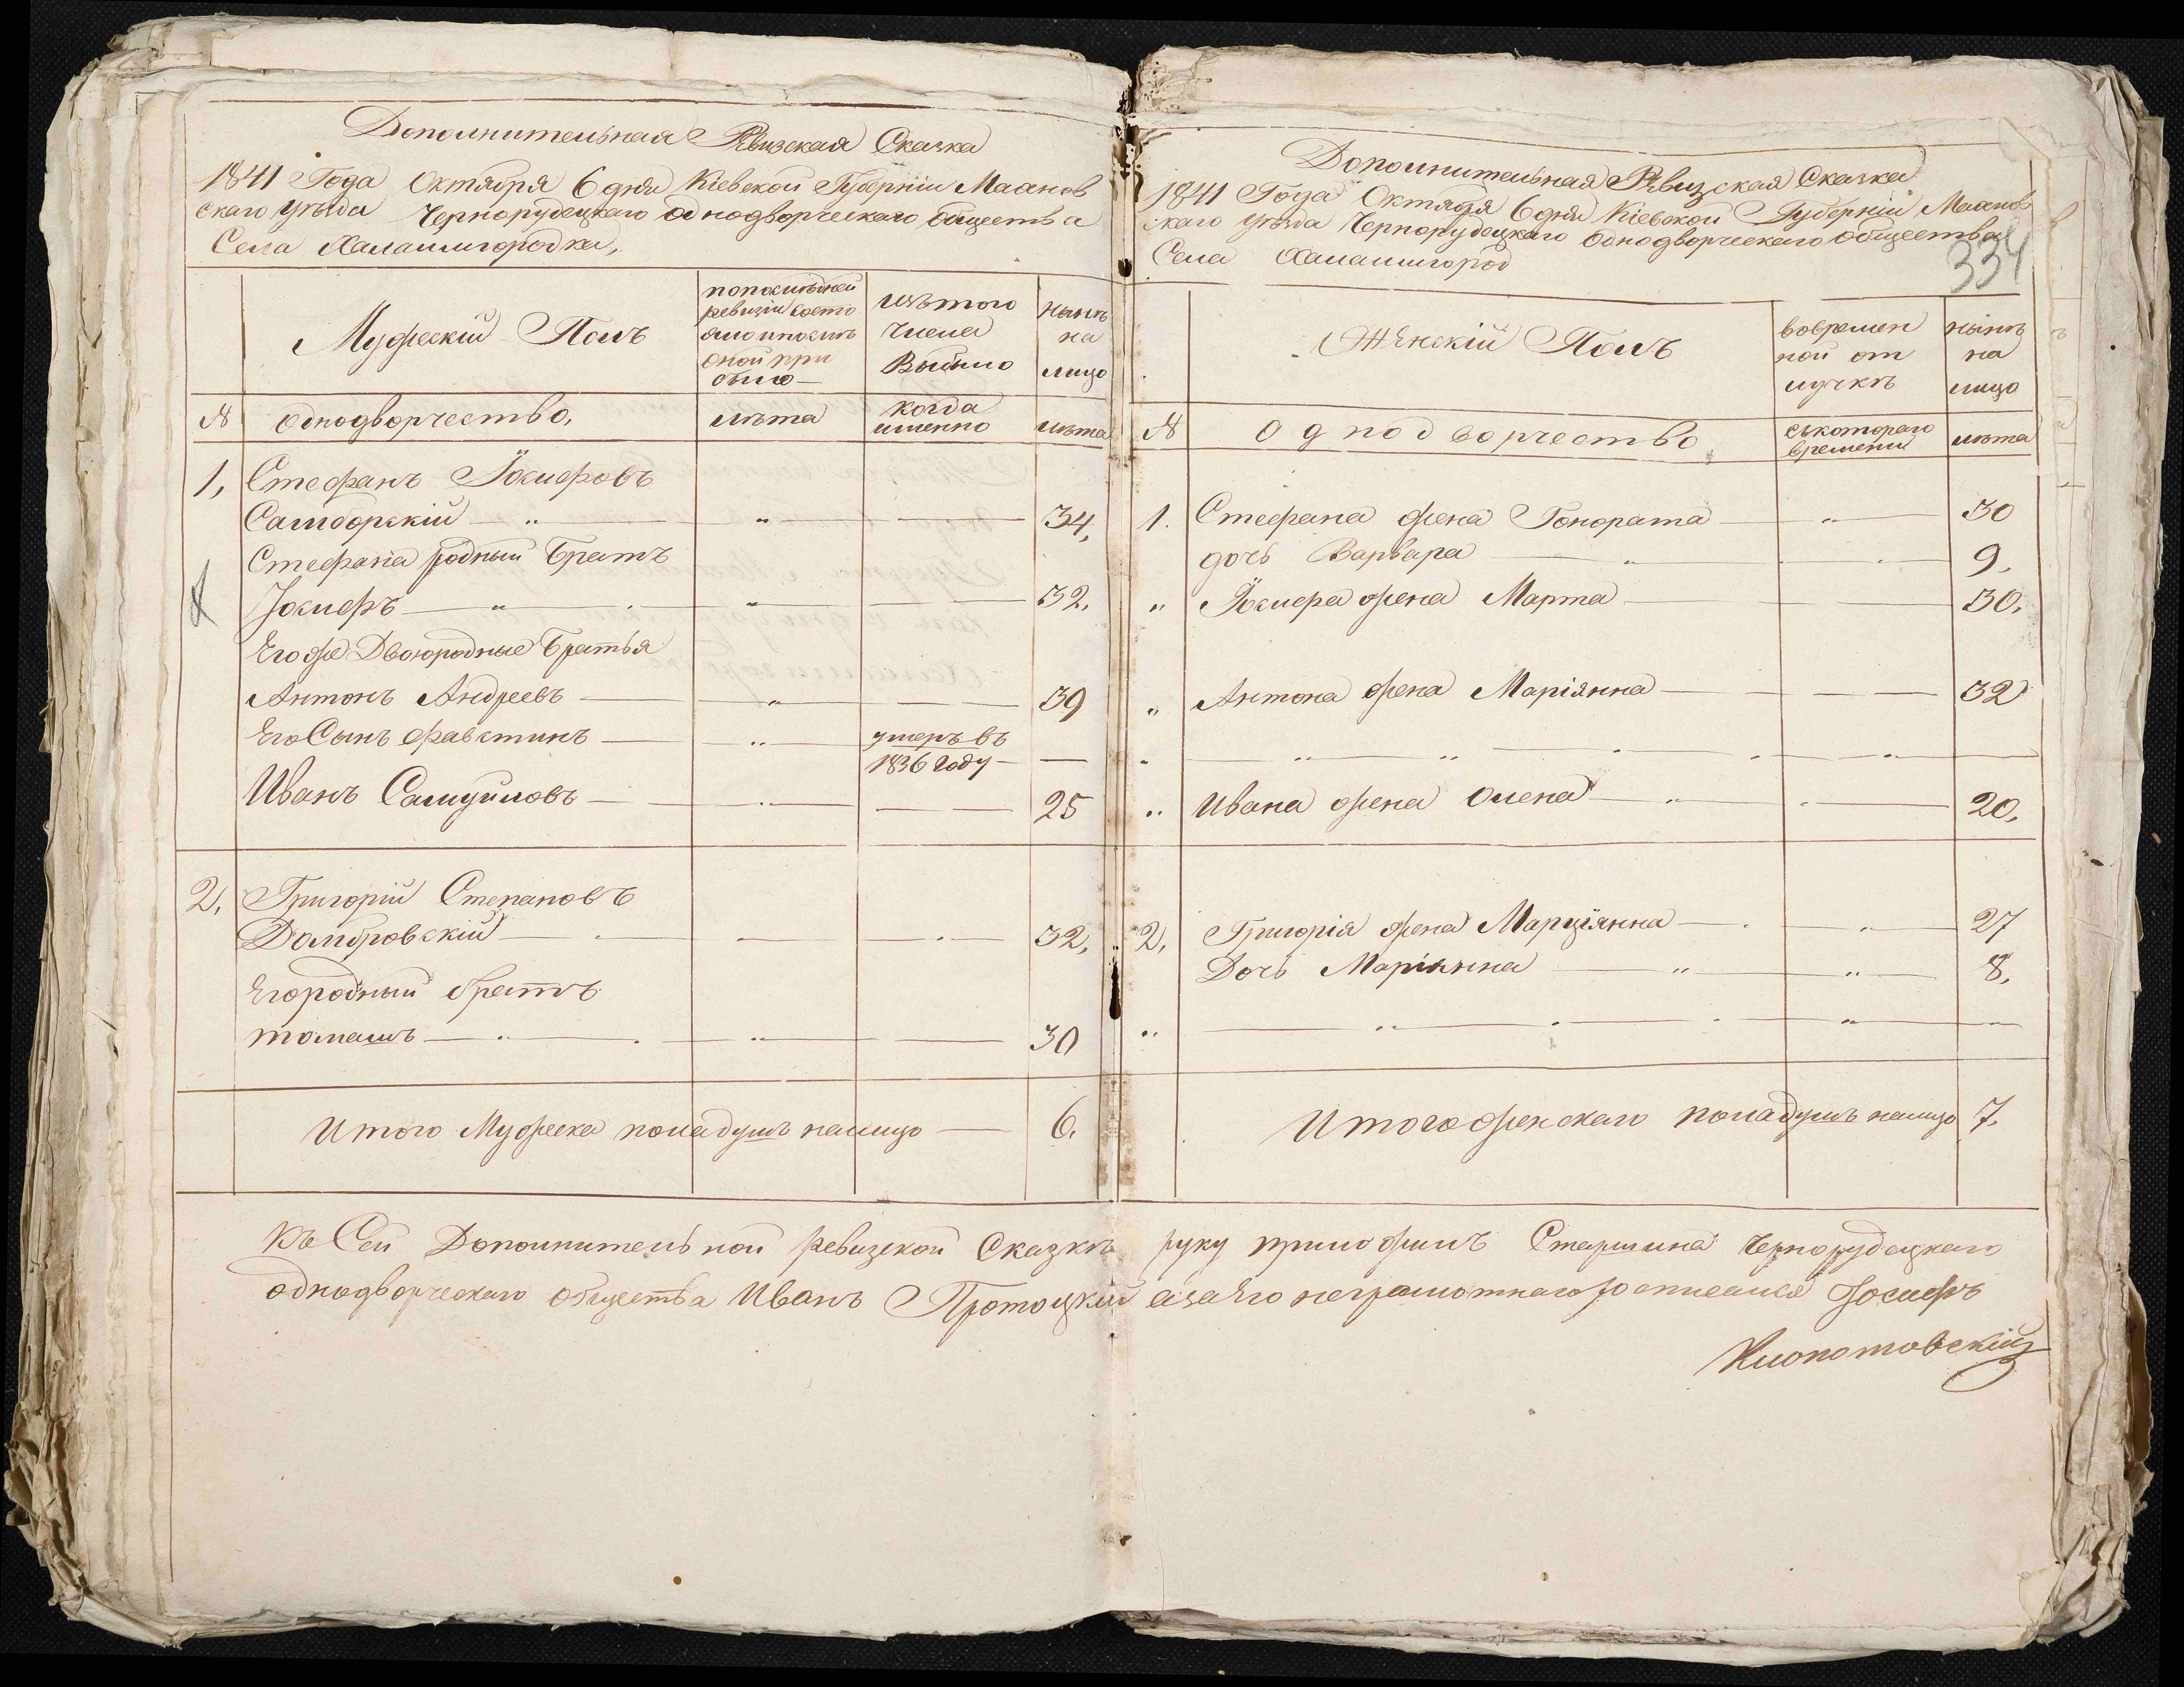 Дополнительная Ревизская Сказка
1841 Года Октября 6 дня Кіевской Губерніи Махнов
скаго уѣзда Чернорудецкаго однодворческаго общества
Села Халаимгородка,
Мужескій Полъ
попослѣдней
ревизіи состо
яло ипослѣ
оной при
было
изътого
числа
Выбыло
нынѣ
на
лицо
№ однодворчество. лѣта когда
именно лѣта
1, Стефанъ Іосифовъ
Самборскій 34,
Стефана родный братъ
Іосифъ 32.
Егоже Двоюродные братья
Антонъ Андреевъ 39
Его Сынъ Фавстинъ умеръ въ
1836 году
Иванъ Самуиловъ 25
2, Григорій Степановъ
Домбровскій 32,
Его родный братъ
томашъ 30
Итого Мужеска пола душъ налицо 6.
Дополнительная Ревизская Сказка
1841 Года Октября 6 дня Кіевской Губерніи Махнов
скаго уѣзда Чернорудецкаго однодворческаго общества
Села Халаимгород
334
Женскій Полъ
вовремен
ной от
лучкѣ
нынѣ
на
лицо
№ Однодворчество съкотораго
времени лѣта
1. Стефана жена Гонората 30
дочь Варвара 9,
" Іосифа жена Марта 30,
" Антона жена Маріянна 32
" Ивана жена Олена 20,
2, Григорія жена Марціянна 27
Дочь Маріянна 8,
Итого женскаго пола душъ налицо 7.
Къ Сей Дополнительной ревизской Сказкѣ руку приложилъ Старшина Чернорудецкаго
однодворческаго общества Иванъ Протоцкій азаего неграмотнаго росписался Іосифъ
Клопотовскій